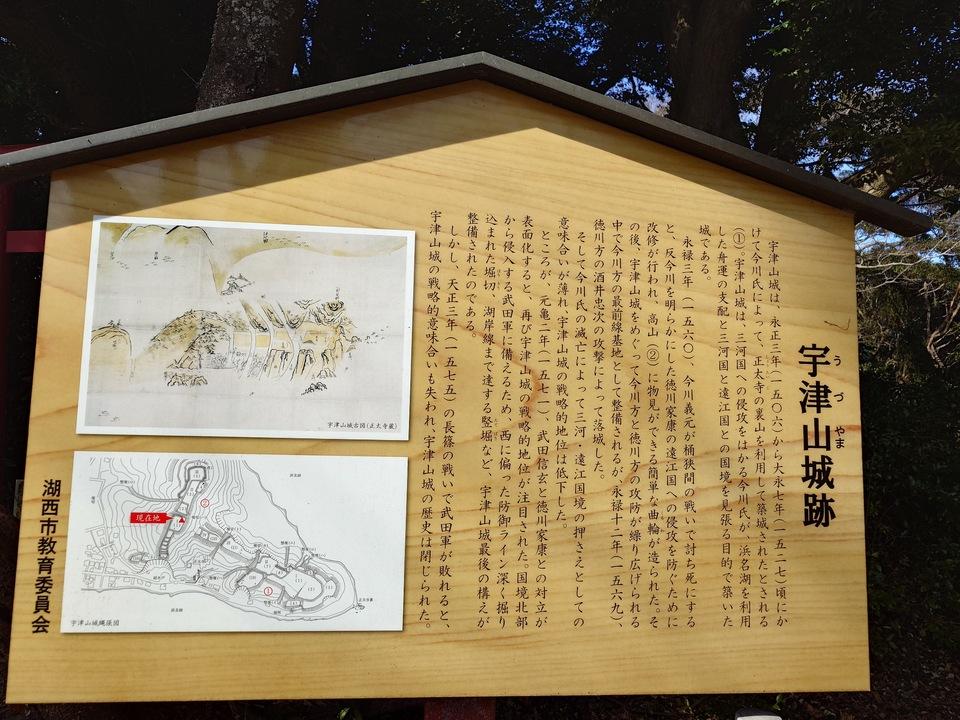 宇津山城跡
うづやま
宇津山城は、永正三年(一五〇六)から大永七年(一五二七)頃にか
けて今川氏によって、正太寺の裏山を利用して築城されたとされる
(①)。宇津山城は、三河国への侵攻をはかる今川氏が、浜名湖を利用
した舟運の支配と三河国と遠江国との国境を見張る目的で築いた
城である。
永禄三年(一五六〇)、今川義元が桶狭間の戦いで討ち死にする
と、反今川を明らかにした徳川家康の遠江国への侵攻を防ぐために
改修が行われ、高山(②)に物見ができる簡単な曲輪が造られた。そ
の後、宇津山城をめぐって今川方と徳川方の攻防が繰り広げられる
中で今川方の最前線基地として整備されるが、永禄十二年(一五六九)、
徳川方の酒井忠次の攻撃によって落城した。
そして今川氏の滅亡によって三河・遠江国境の押さえとしての
意味合いが薄れ、宇津山城の戦略的地位は低下した。
ところが、元亀二年(一五七一)、武田信玄と徳川家康との対立が
表面化すると、再び宇津山城の戦略的地位が注目された。国境北部
から侵入する武田軍に備えるため、西に偏った防御ライン深く掘り
込まれた堀切、湖岸線まで達する竪堀など、宇津山城最後の構えが
整備されたのである。
しかし、天正三年(一五七五)の長篠の戦いで武田軍が敗れると、
宇津山城の戦略的意味合いも失われ、宇津山城の歴史は閉じられた。
宇津山城古図(正太寺蔵)
現在地
②
①
宇津山城縄張図
湖西市教育委員会